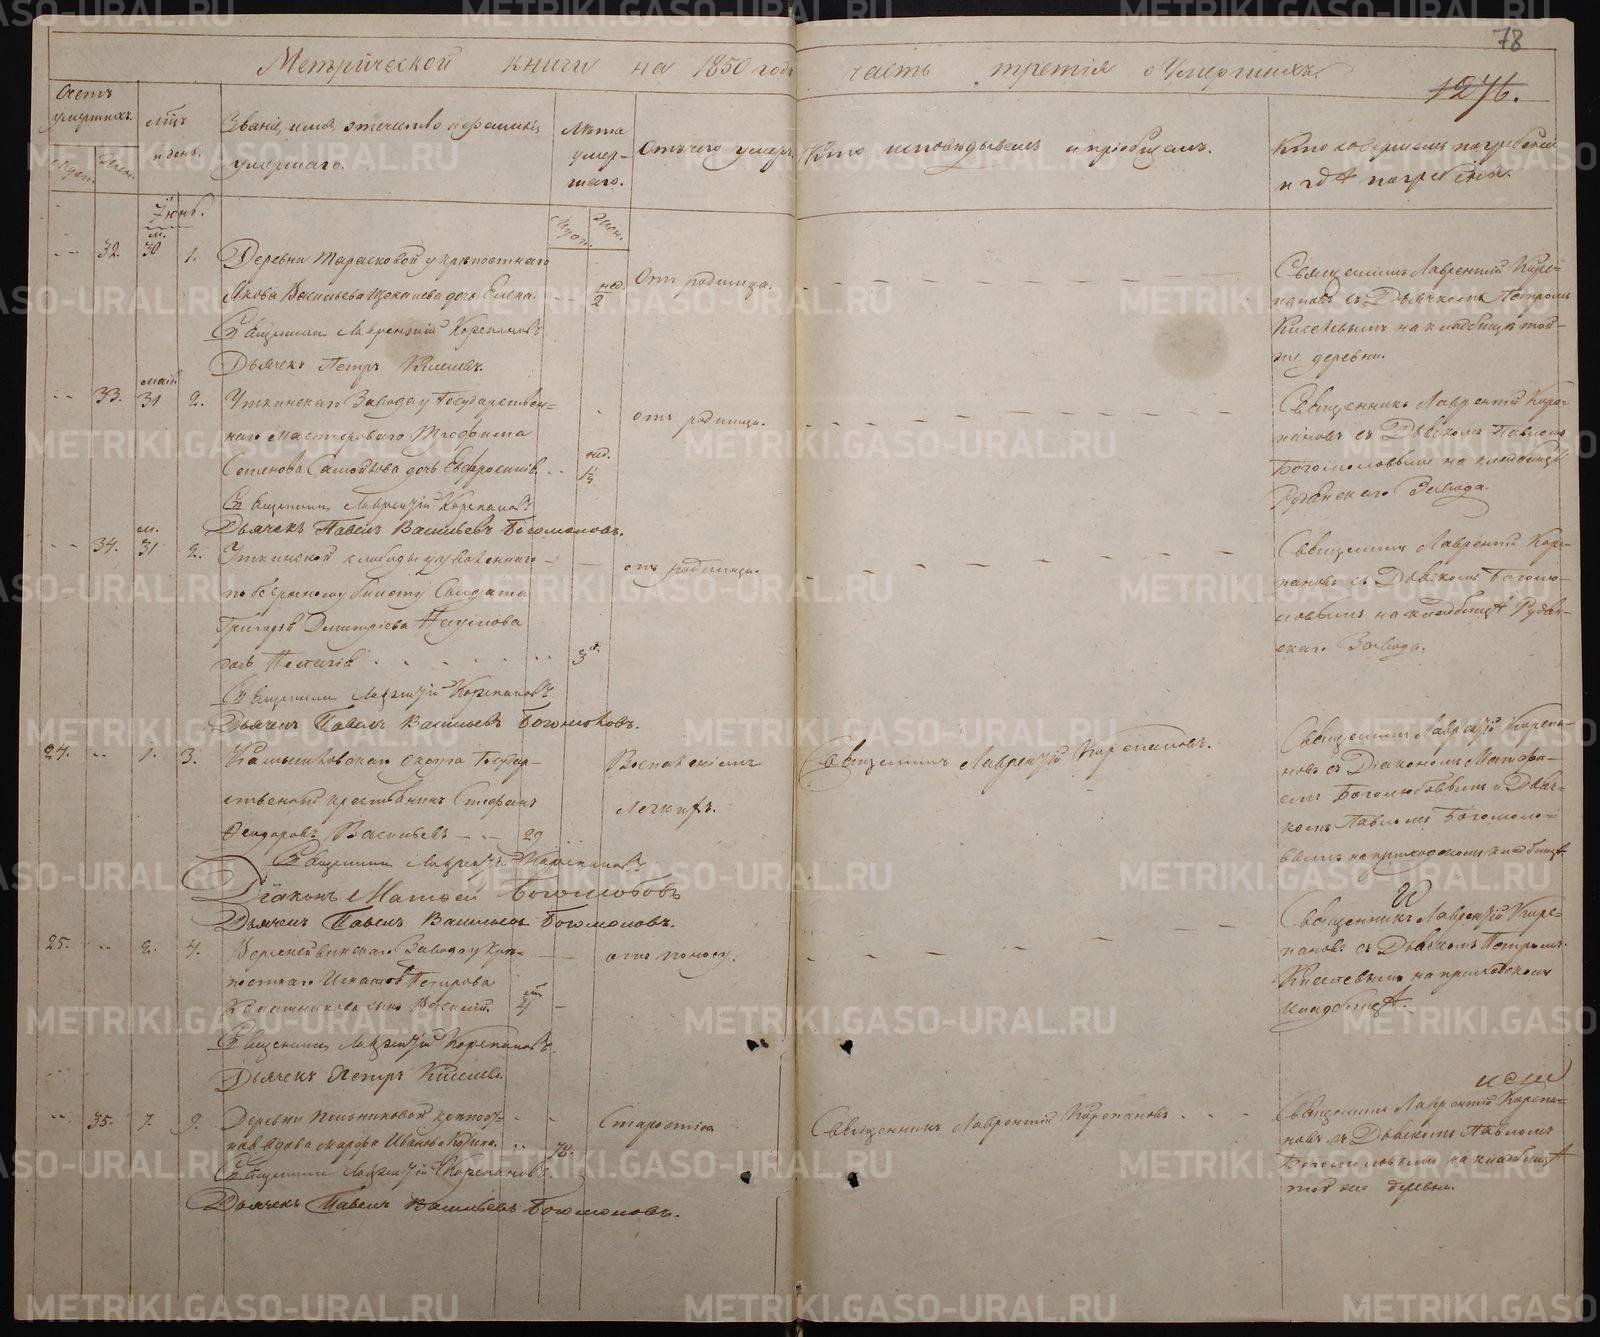 78
Метрической книги на 1850 годъ часть третія о Умершихъ.
1276.
Счетъ умершихъ.
Муж. Жен.
Мѣсяцъ и день.
Званіе, имя, отчество и фамилія
умершаго.
Лѣта
умер-
шаго.
Муж. Жен.
Отъ чего умеръ.
Кто исповѣдывалъ и пріобщалъ.
Кто совершалъ погребеніе
и гдѣ погребенъ.
Іюнь.
32. 30 1. Деревни Тарасковой у крѣпостнаго
Якова Васильева дочь Елена. нед. 2
Отъ родимца.
Священникъ Лаврентій Корепановъ
Дьячекъ Петръ Киселевъ.
Священникъ Лаврентій Коре-
пановъ съ Дьячкомъ Петромъ
Киселевымъ на кладбищѣ той-
же деревни.
маія
33. 31 2. Уткинскаго Завода у Государствен-
наго мастероваго Трофима
Семенова дочь Евфросинія нед.
отъ родимца.
Священникъ Лаврентій Корепановъ
Дьячекъ Павелъ Васильевъ Богомоловъ.
Священникъ Лаврентій Коре-
пановъ съ Дьячкомъ Павломъ
Богомоловымъ на кладбищѣ
Завода.
м.
34. 31 2. Уткинской слободы у уволеннаго
по безсрочному билету Солдата
Григорья Димитріева Наумова
дочь 3
отъ родимца.
Священникъ Лаврентій Корепановъ
Дьячекъ Павелъ Васильевъ Богомоловъ.
Священникъ Лаврентій Коре-
пановъ съ Дьячкомъ Богомо-
ловымъ на кладбищѣ
Завода.
24. 1. 3. Камышловскаго округа Государ-
ственный крестьянинъ Стефанъ
Феодоровъ Васильевъ 29
Воспаленіемъ
легкихъ.
Священникъ Лаврентій Корепановъ.
Священникъ Лаврентій Корепановъ
Діаконъ Матфей Боголюбовъ
Дьячекъ Павелъ Васильевъ Богомоловъ.
Священникъ Лаврентій Корепа-
новъ съ Діакономъ Матфе-
емъ Боголюбовымъ и Дьяч-
комъ Павломъ Богомоло-
вымъ на приходскомъ кладбищѣ.
25. 2. 4. Верхнейвинскаго Завода у крѣ-
постнаго Игнатія Петрова
сынъ Василій. 4
отъ поносу.
Священникъ Лаврентій Корепановъ.
Дьячекъ Петръ Киселевъ.
Священникъ Лаврентій Коре-
пановъ съ Дьячкомъ Петромъ
Киселевымъ на приходскомъ
кладбищѣ.
35. 7. 9. Деревни Пальниковой крѣпост-
ная вдова Марфа Иванова 70.
Старостію
Священникъ Лаврентій Корепановъ
Священникъ Лаврентій Корепановъ.
Дьячекъ Павелъ Васильевъ Богомоловъ.
Священникъ Лаврентій Корепа-
новъ съ Дьячкомъ Павломъ
Богомоловымъ на кладбищѣ
той же деревни.
METRIKI.GASO-URAL.RU